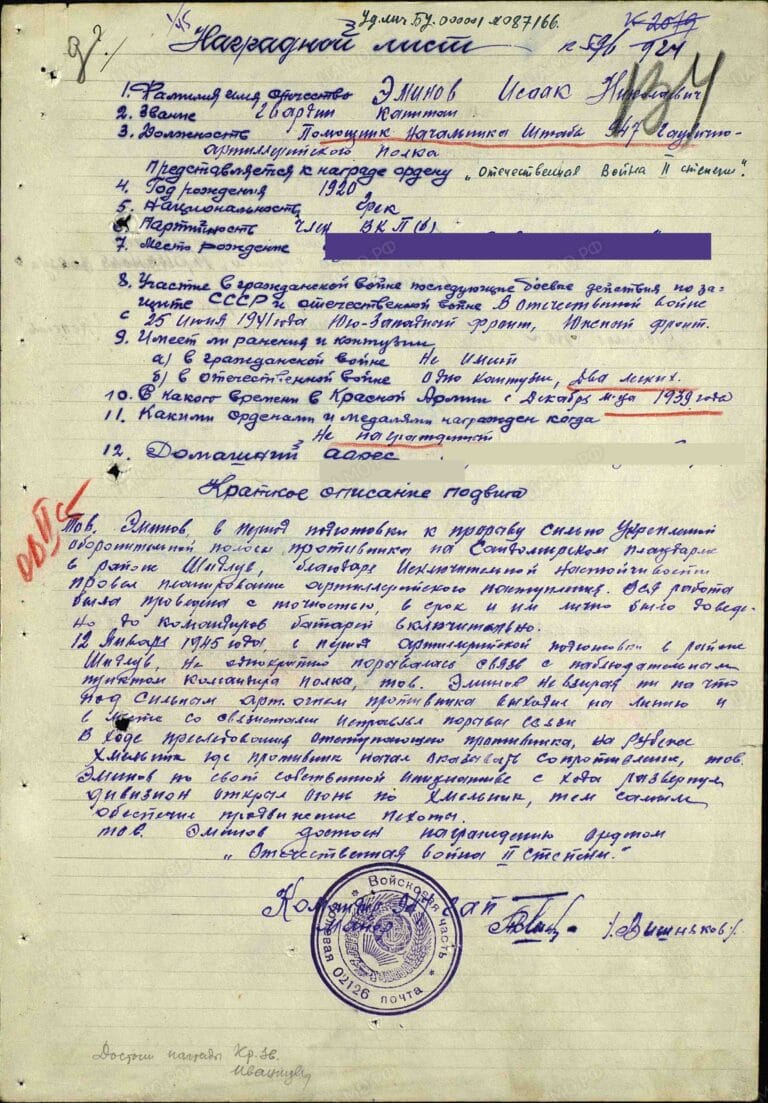 Уд. лич. БУ. 000001 № 087166.
1/45
Наградной лист
1. Фамилия имя отчество Эминов Исаак Николаевич
2. Звание Гвардии капитан
3. Должность Помощник Начальника Штаба 947 Гаубично-
артиллерийского полка
Представляется к награде ордену „Отечественная Война II степени".
4. Год рождения 1920
5. Национальность Грек
6. Партийность член ВКП(б)
7. Место рождение
8. Участие в гражданской войне последующие боевые действия по за-
щите СССР и отечественной войне В отечественной войне
с 25 июня 1941 года Юго-Западный фронт, Южный фронт.
9. Имеет ли ранения и контузии
а) в гражданской войне Не имеет
б) в отечественной войне одно контузии, два легких.
10. С какого времени в Красной Армии с Декабря м-ца 1939 года
11. Какими орденами и медалями награжден когда
Не награжденный
12. Домашний адрес
Краткое описание подвига
Тов. Эминов, в период подготовки к прорыву сильно укрепленной
оборонительной полосы противника на Сандомирском плацдарме
в районе Шидлув, благодаря исключительной настойчивости
провел планирование артиллерийского наступления. Вся работа
была проведена с точностью, в срок и им лично было доведе-
но до командиров батарей включительно.
12 Января 1945 года, в период артиллерийской подготовки в районе
Шидлув, не однократно порывалась связь с наблюдательным
пунктом командира полка, тов. Эминов невзирая ни на что
под сильным арт. огнем противника выходил на линию и
в месте со связистами исправлял порывы связи
В ходе преследования отступающего противника, на рубеже
Хмельник где противник начал оказывать сопротивление, тов.
Эминов по своей собственной инициативе с хода развернул
дивизион открыл огонь по Хмельник, тем самым
обеспечив продвижение пехоты.
тов. Эминов достоен награждению орденом
„Отечественная война II степени."
Командир 947 ГАП
Майор /Вишняков/.
Войсковая часть
полевая почта 02126
Достоин награды Кр. Зв.